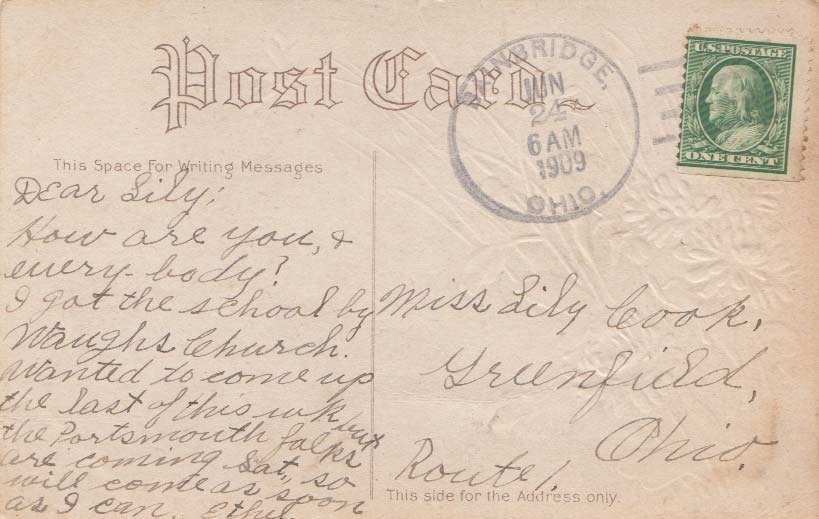 Post Card
BAINBRIDGE,
JUN
24
6 AM
1909
OHIO.
U.S. POSTAGE
ONE CENT
This Space For Writing Messages
Dear Lily;
How are you, &
every-body?
I got the school by
Waughs Church.
Wanted to come up
the last of this wk but
the Portsmouth folks
are coming Sat., so
will come as soon
as I can. Ethel.
Miss Lily Cook,
Greenfield,
Ohio.
Route 1.
This side for the Address only.